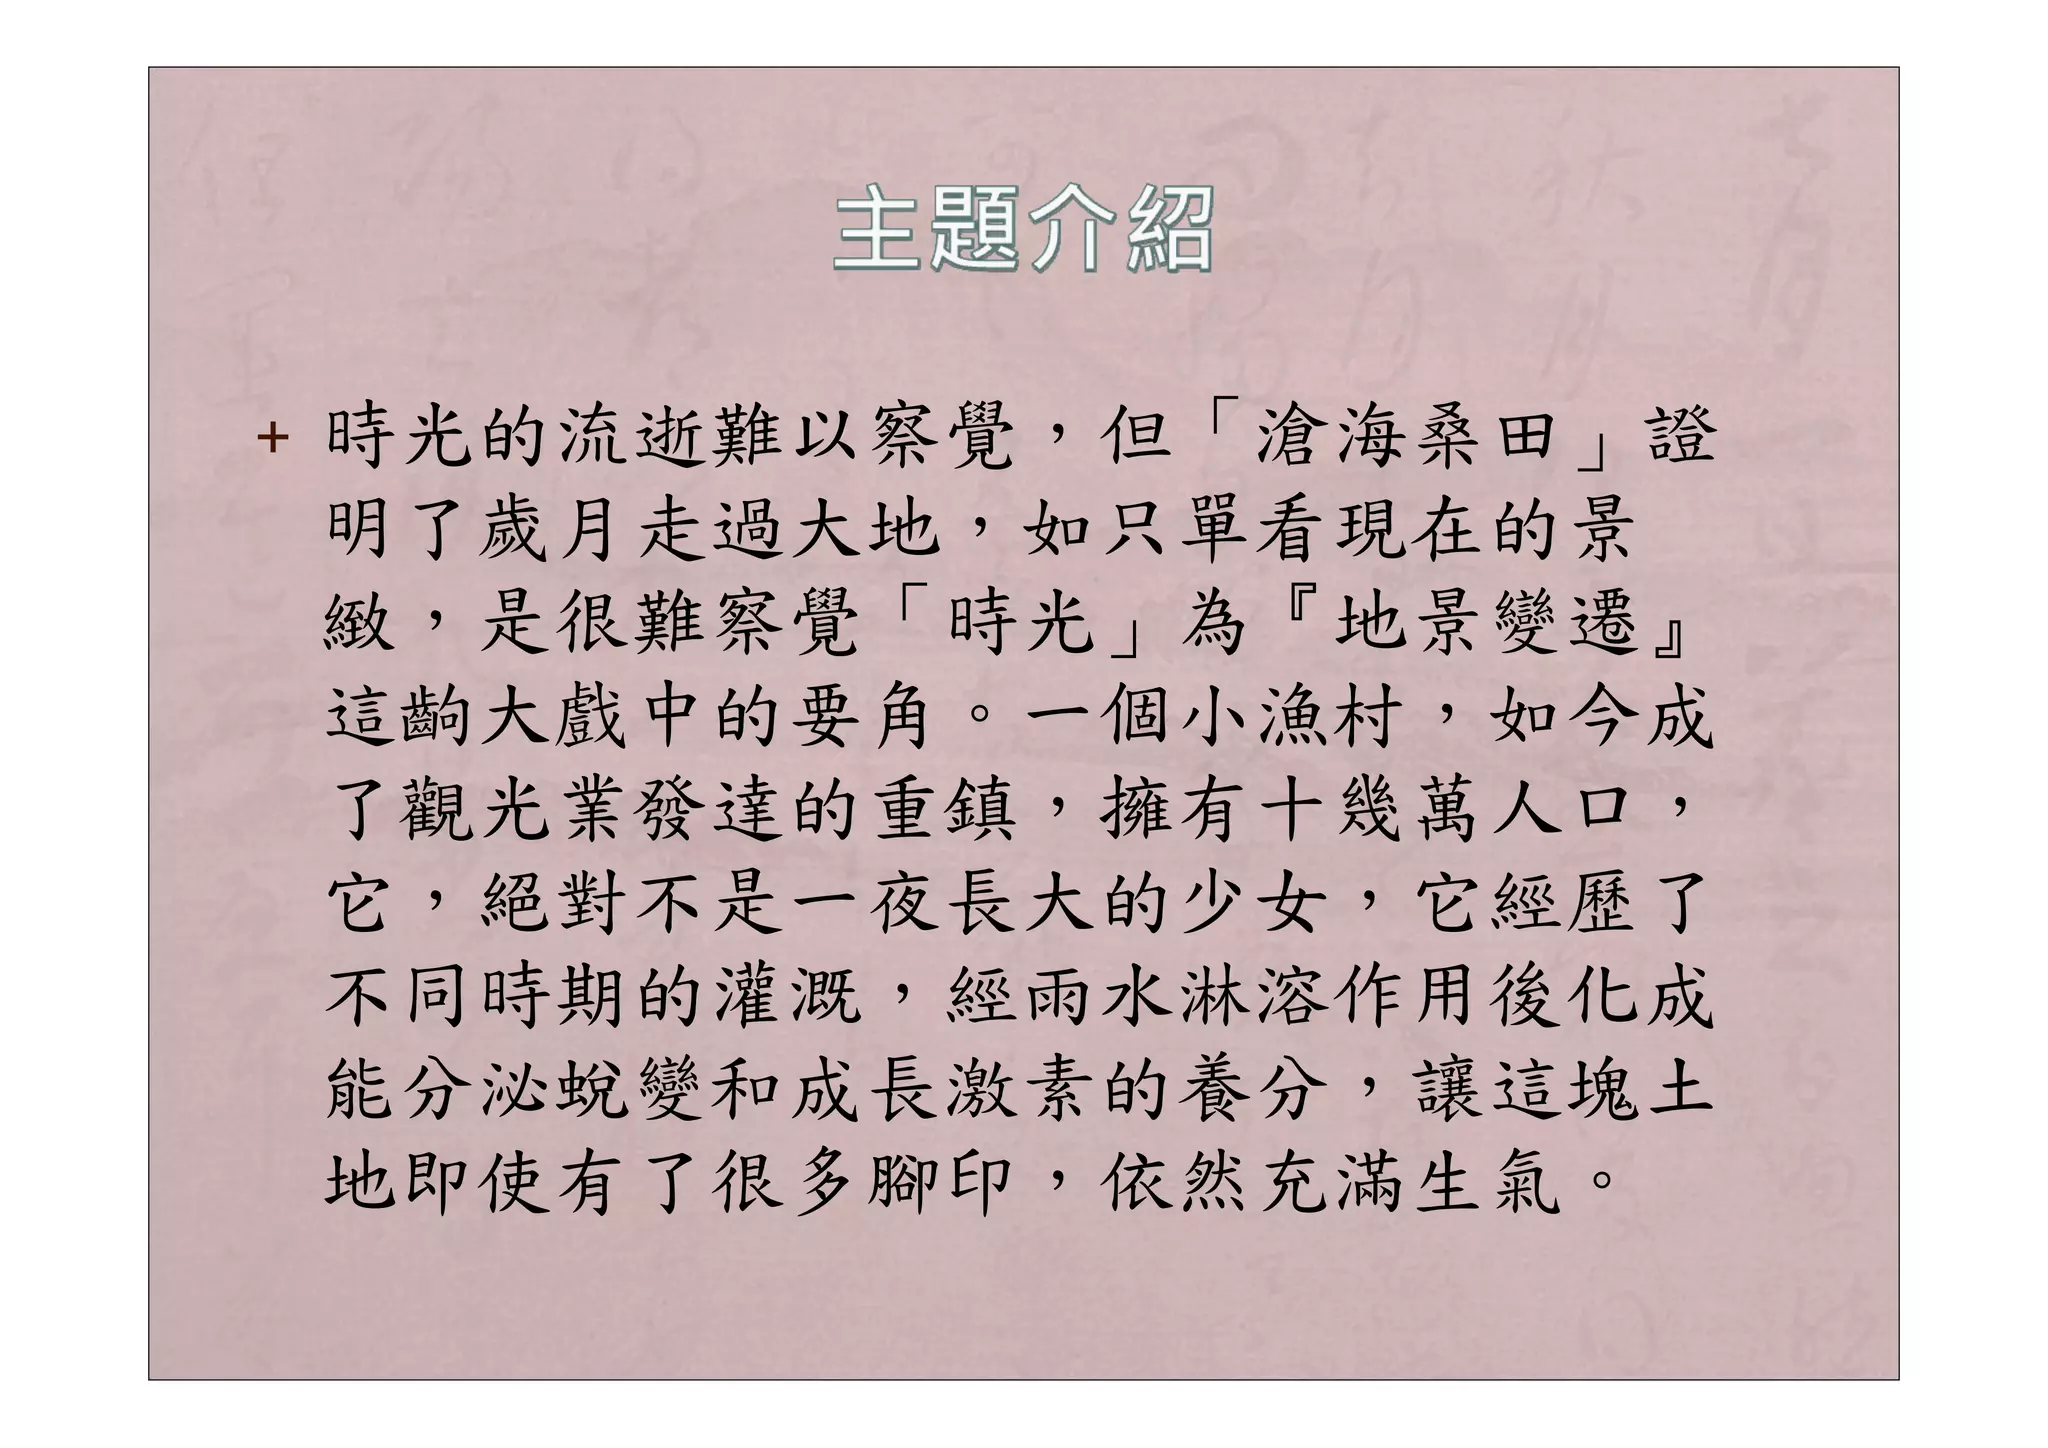 主題介紹
+ 時光的流逝難以察覺，但「滄海桑田」證
明了歲月走過大地，如只單看現在的景
緻，是很難察覺「時光」為『地景變遷』
這齣大戲中的要角。一個小漁村，如今成
了觀光業發達的重鎮，擁有十幾萬人口，
它，絕對不是一夜長大的少女，它經歷了
不同時期的灌溉，經雨水淋溶作用後化成
能分泌蛻變和成長激素的養分，讓這塊土
地即使有了很多腳印，依然充滿生氣。